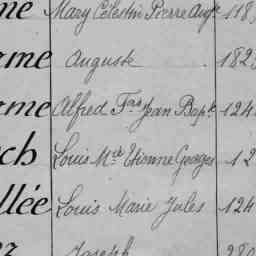 me Mary Célestin Pierre Augte 118
ame Auguste 182
ame Alfred Fois Jean Bapte 124
ch Louis Mie Etienne Georges 12
llée Louis Marie Jules 124
Joseph 280